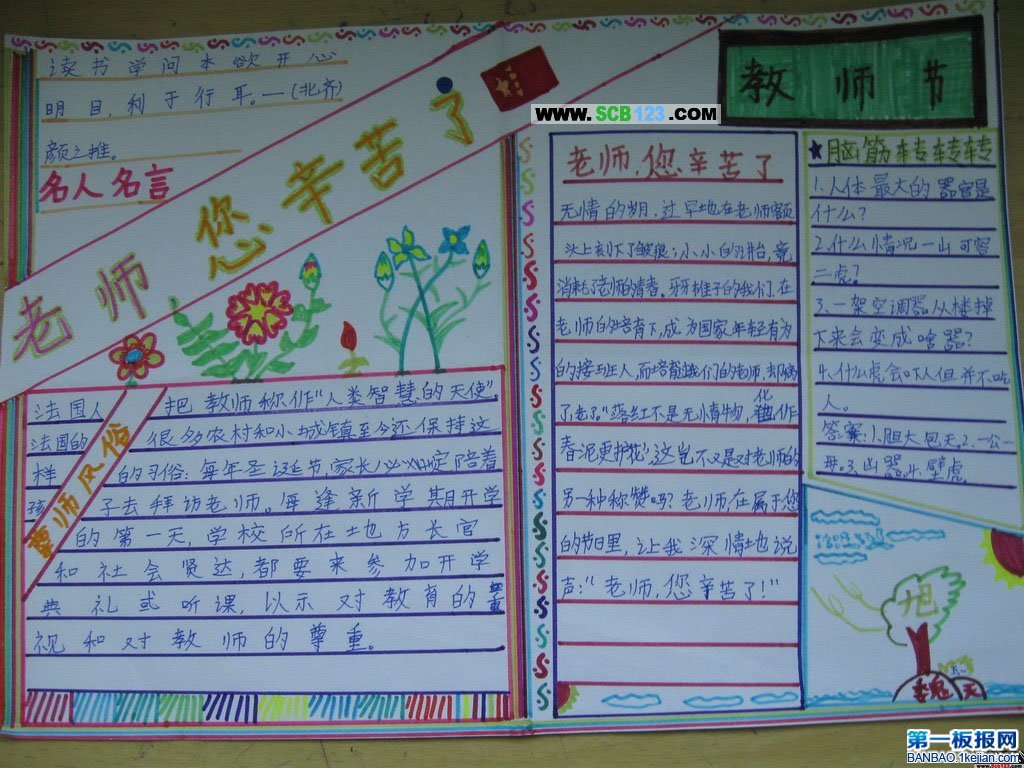 读书学问本欲开心
明目,利于行耳。—(北齐)
颜之推。
名人名言
老师 您辛苦了
教师节
WWW.SCB123.COM
尊师风俗
法国人 把教师称作“人类智慧的天使”。
法国的 很多农村和小城镇至今还保持这
样 的习俗:每年圣诞节,家长必定陪着
孩 子去拜访老师。每逢新学期开学
的第一天,学校所在地方长官
和社会贤达,都要来参加开学
典礼或听课,以示对教育的重
视和对教师的尊重。
老师,您辛苦了
无情的岁月,过早地在老师额
头上刻下了皱痕;小小的讲台,竟
消耗了老师的青春。牙牙稚子的我们,在
老师的培育下,成为国家年轻有为
的接班人,而培育我们的老师,却
了老了。“落红不是无情物,化作
春泥更护花”,这岂不又是对老师的
另一种称赞吗?老师,在属于您
的节日里,让我深情地说
声:“老师,您辛苦了!”
★脑筋转转转
1.人体最大的器官是
什么?
2.什么情况一山可容
二虎?
3.一架空调器从楼掉
下来会变成啥器?
4.什么虎会吓人但并不吃
人。
答案:1.胆大包天2.一公一
母.3.凶器.4.壁虎
旭
魏天
第一板报网
BANBAO.1kejian.com